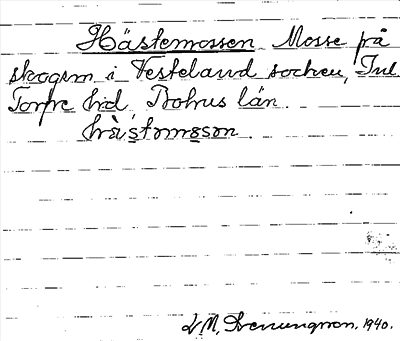 Hästemossen Mosse på
skogen i Vesteland socken, Inl.
Torpe hd, Bohus län.
1940.